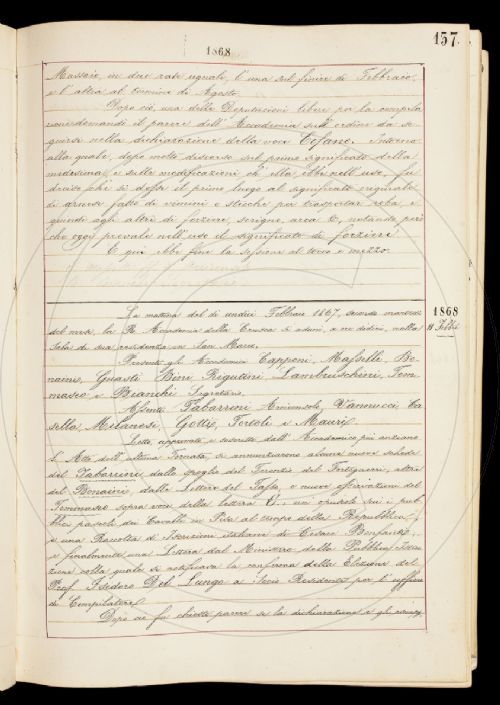 157.
1868
Massaio, in due rate uguale, l'una sul finire di Febbraio,
e l'altra al termine di Agosto.
Dopo ciò, una delle Deputazioni libere per la compila
zione domandò il parere dell'Accademia sull'ordine da se-
guirsi nella dichiarazione della voce Cofano. Intorno
alla quale, dopo molto discorso sul primo significato della
medesima e sulle modificazioni ch'ella ebbe nell'uso, fu
deciso che si dasse il primo luogo al significato originale
di arnese fatto di vimini e stecche per trasportar roba, e
quindi agli altri di forziere, scrigno, arca &c, notando però
che oggi prevale nell'uso il significato di forziere.
E qui ebbe fine la sessione al tocco e mezzo.
1868
11 Febb.
La mattina del dì undici Febbraio 1867, secondo martedì
del mese, la R. Accademia della Crusca si adunò, a ore dodici, nella
Sala di sua residenza in San Marco.
Presenti gli Accademici Capponi, Masselli, Bo-
naini, Guasti Bini, Rigutini, Lambruschini, Tom-
maseo e Bianchi Segretario.
Assenti, Tabarrini Arciconsolo, Vannucci, Ca
sella, Milanesi, Gotti, Tortoli e Mauri.
Letto approvato e sottoscritto dall'Accademico più anziano
l'Atto dell'ultima Tornata, si annunziarono alcune nuove schede
del Tabarrini dallo spoglio del Terenzio del Forteguerri, altre
del Bonaini, dalle Lettere del Tasso, e nuove osservazioni del
Tommaseo sopra voci della lettera C., un opuscolo sui pub-
blici parochi dei Cavalli in Pisa al tempo della Repubblica,
e una Raccolta d'Iscrizioni italiane di Cesare Bonfanti,
e finalmente una Lettera del Ministero della Pubblica Istru
zione colla quale si notificava la conferma della Elezione del
Prof. Isidoro Del Lungo a Socio Residente per l'ufficio
di Compilatore.
Dopo ciò fu chiesto parere se la dichiarazione e gli esempj